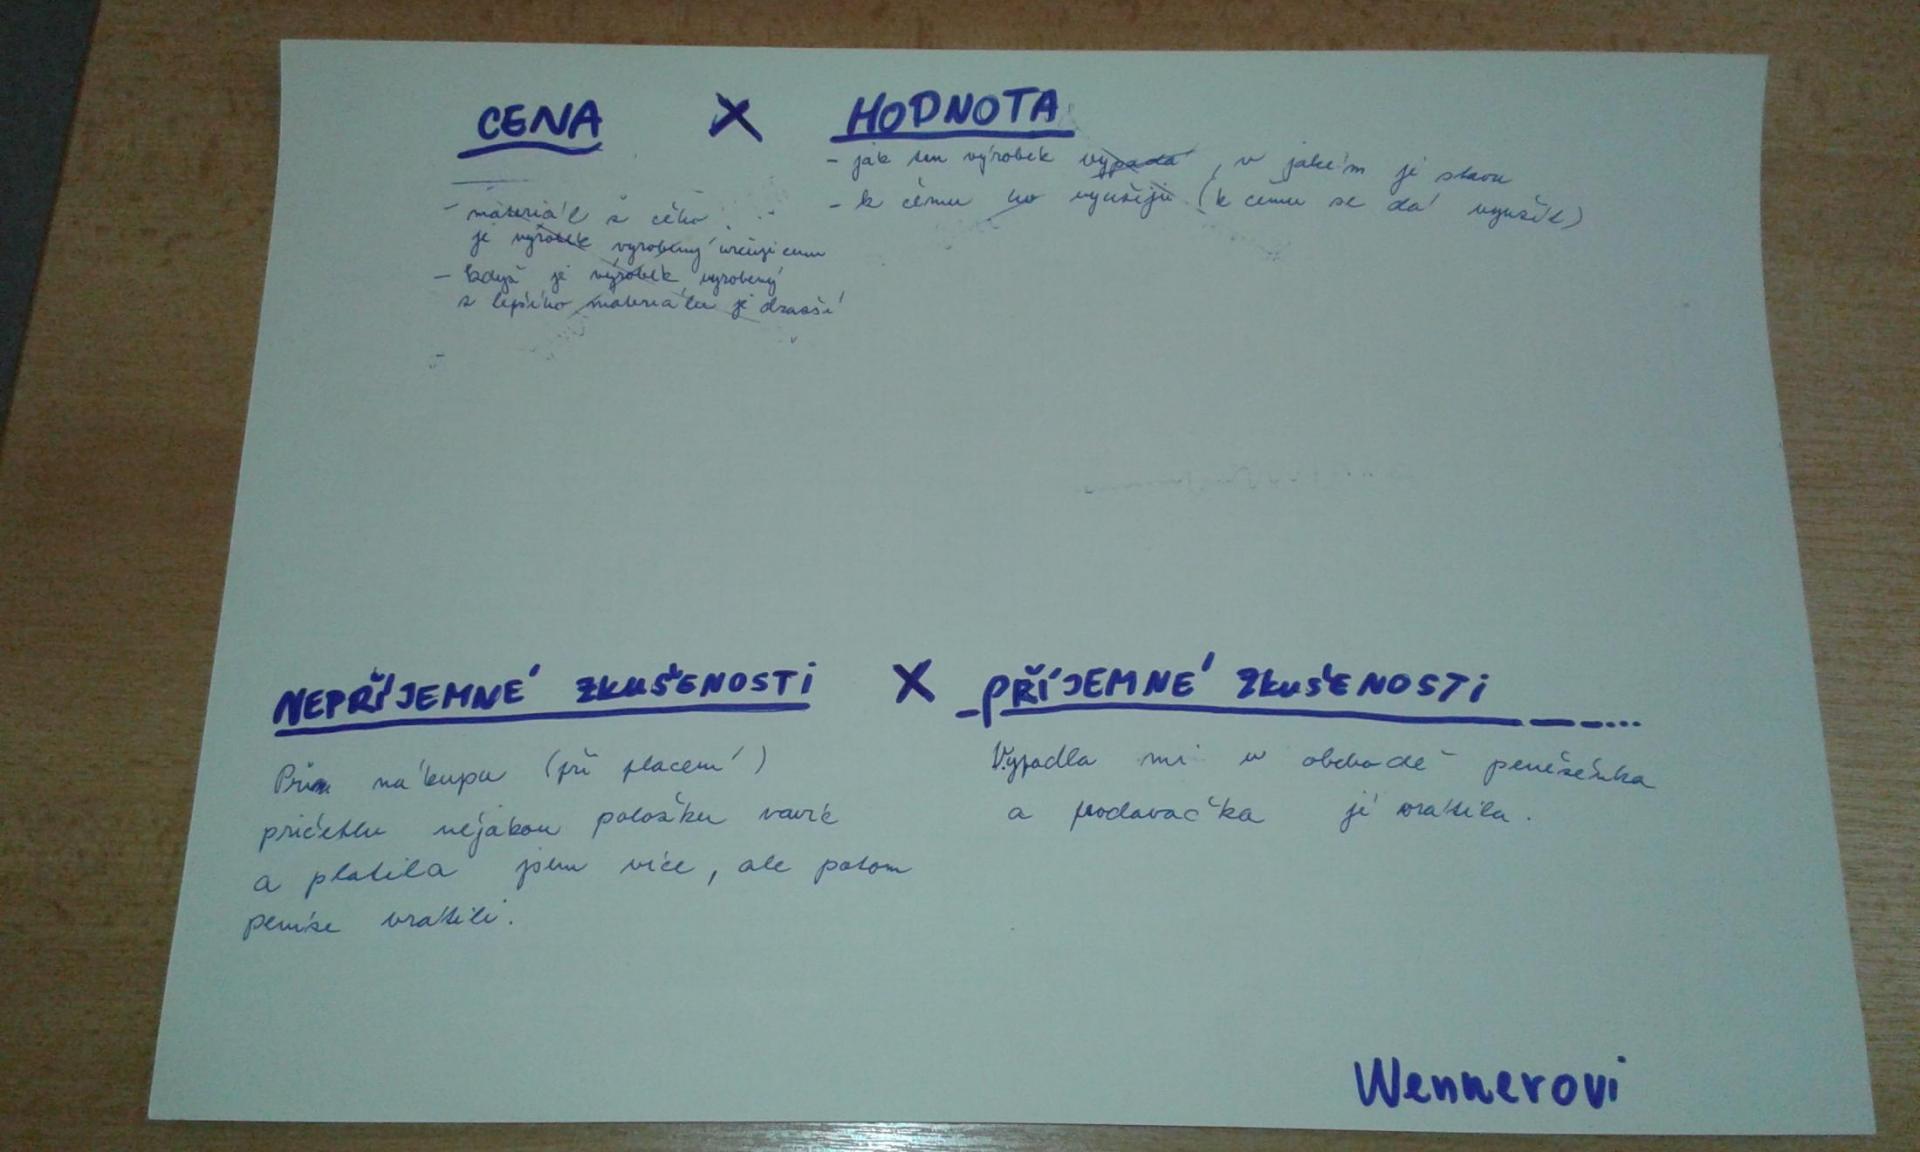 CENA X HODNOTA
- jak ten výrobek vypadá, v jakém je stavu
- k čemu ho využiji (k čemu se dá využít)
- materiál z čeho
je výrobek vyrobený určuje cenu
- když je výrobek vyrobený
z lepšího materiálu je dražší
NEPŘÍJEMNÉ ZKUŠENOSTI X PŘÍJEMNÉ ZKUŠENOSTI
Při nákupu (při placení)
přičetli nějakou položku navíc
a platila jsem více, ale potom
peníze vrátili.
Vypadla mi v obchodě peněženka
a prodavačka ji vrátila.
Wennerovi